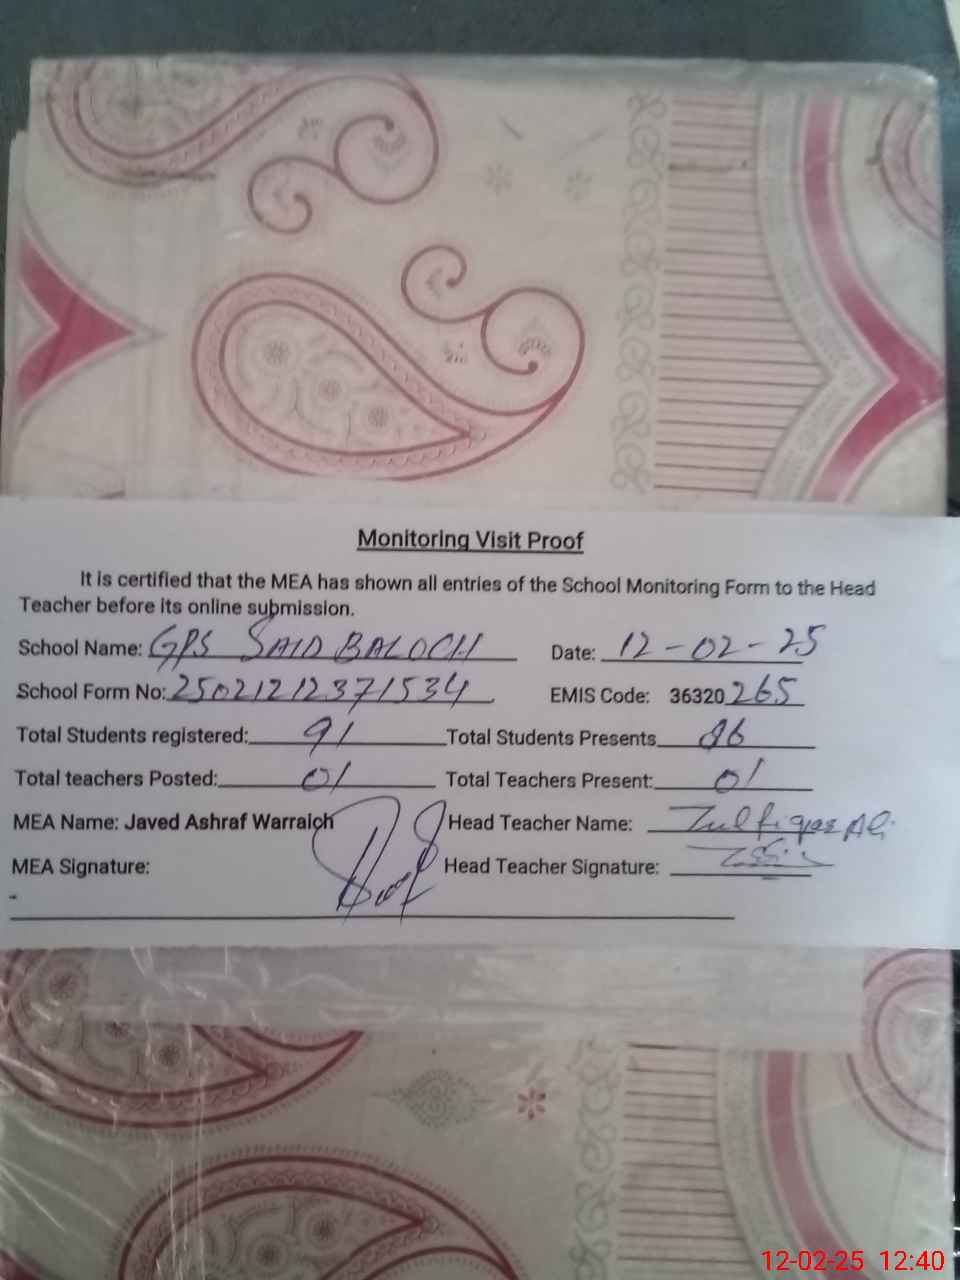 Monitoring Visit Proof
It is certified that the MEA has shown all entries of the School Monitoring Form to the Head
Teacher before its online submission.
School Name: GPS SAID BALOCH Date: 12-02-25
School Form No: 25021212371534 EMIS Code: 36320 265
Total Students registered: 91 Total Students Presents 86
Total teachers Posted: 01 Total Teachers Present: 01
MEA Name: Javed Ashraf Warraich Head Teacher Name: Zulfiqar Ali
MEA Signature: Head Teacher Signature:
12-02-25 12:40